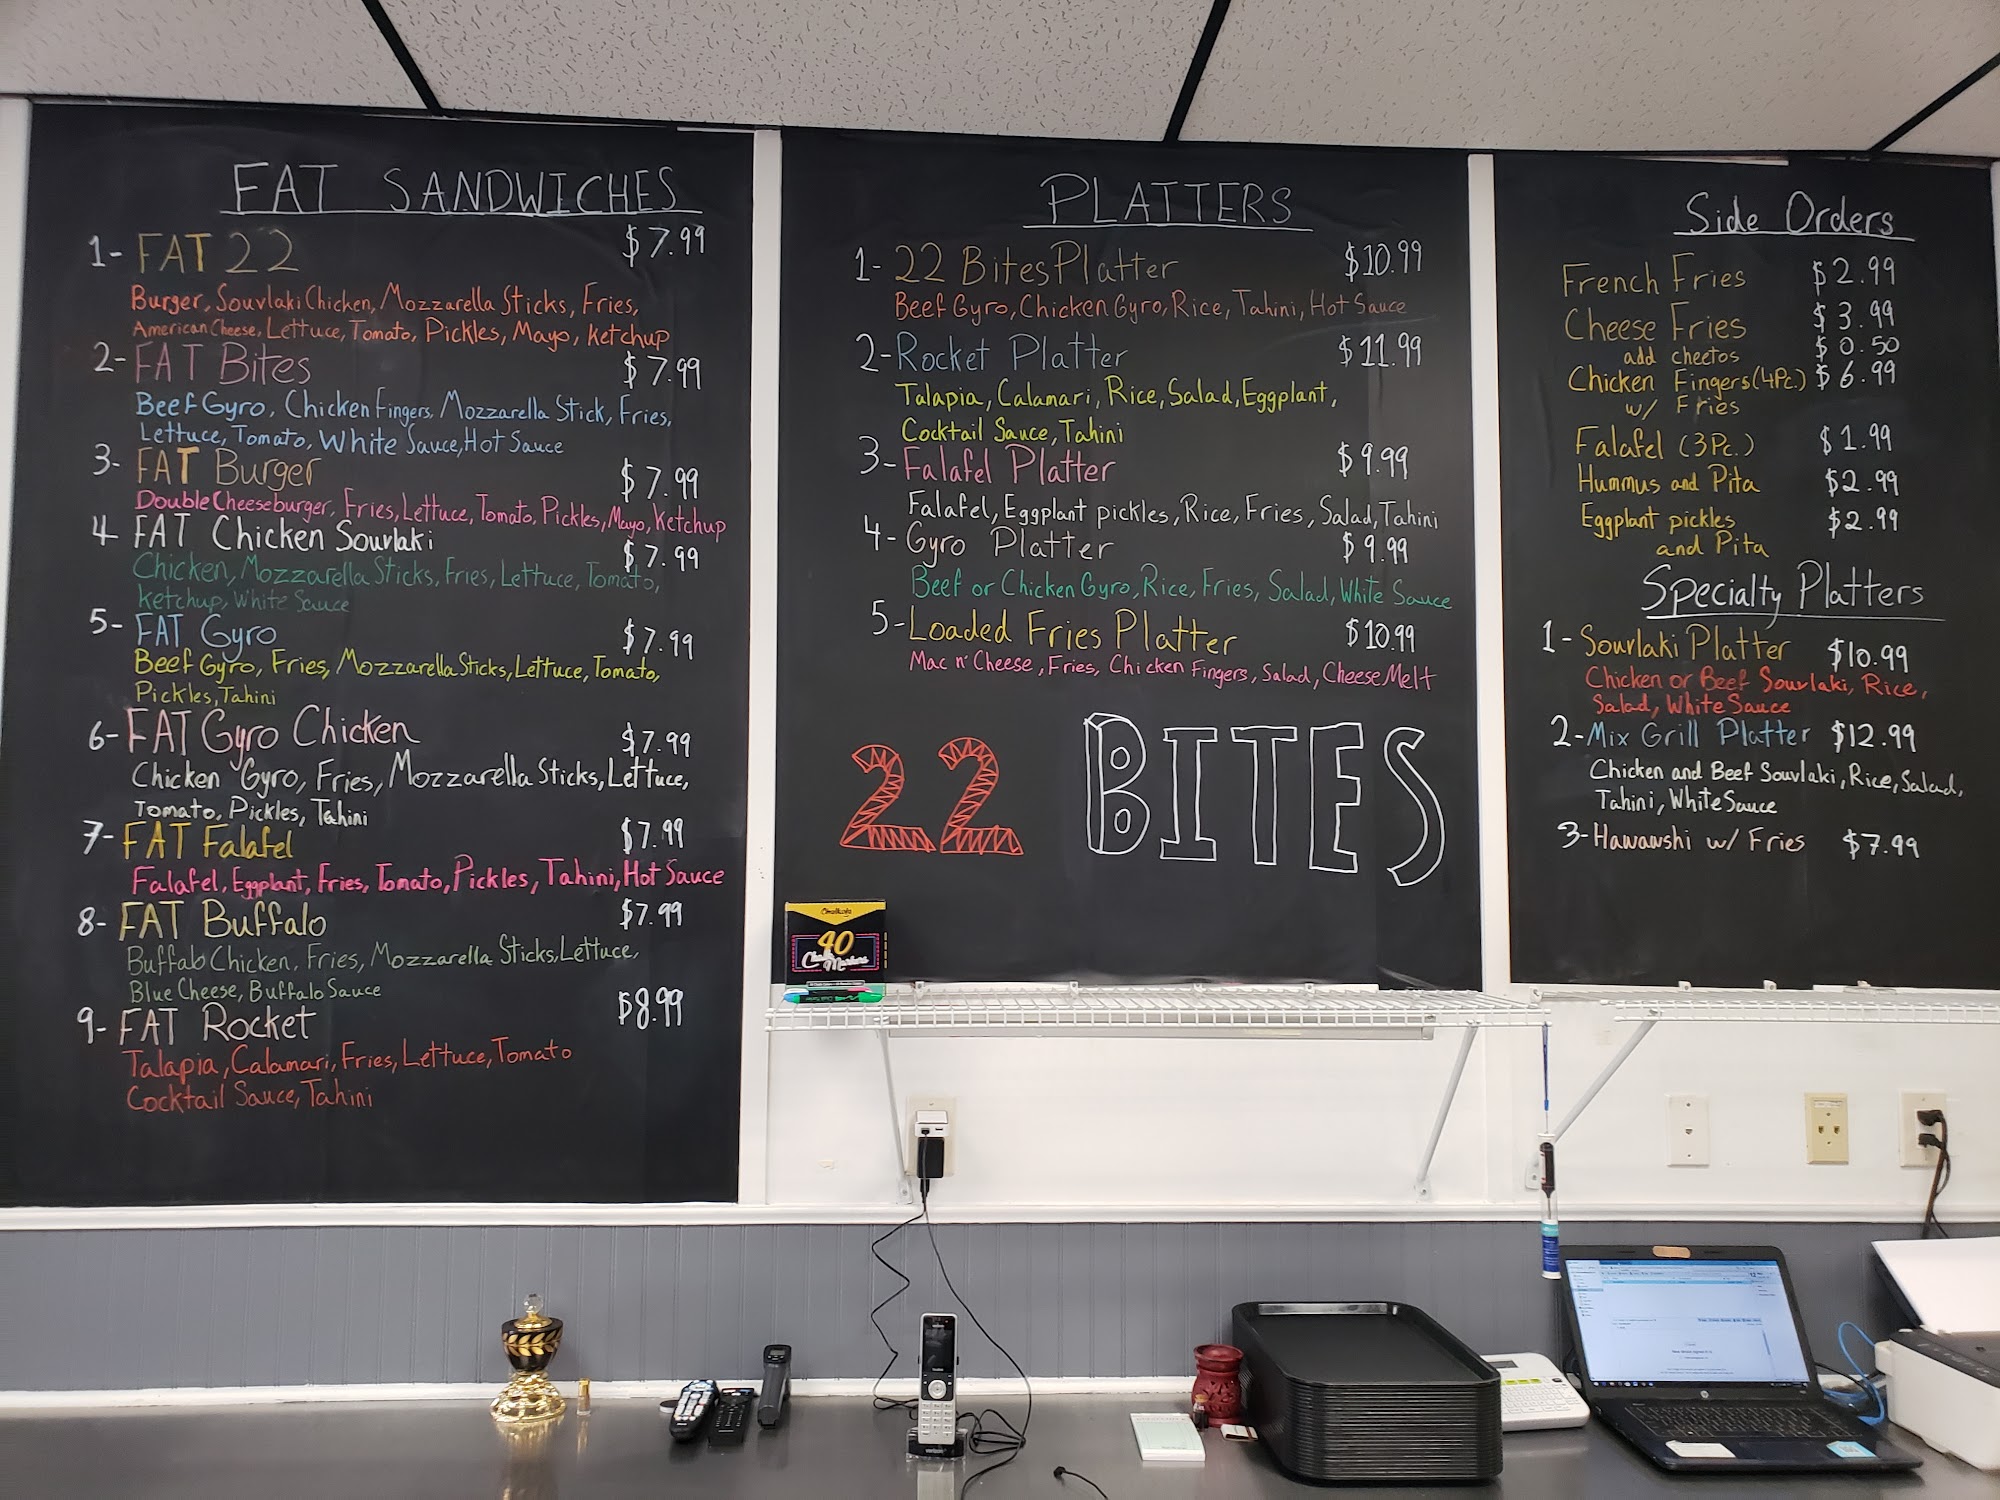 FAT SANDWICHES
1- FAT 22 $7.99
Burger, Souvlaki Chicken, Mozzarella Sticks, Fries,
American Cheese, Lettuce, Tomato, Pickles, Mayo, Ketchup
2- FAT Bites $7.99
Beef Gyro, Chicken Fingers, Mozzarella Stick, Fries,
Lettuce, Tomato, White Sauce, Hot Sauce
3- FAT Burger $7.99
Double Cheeseburger, Fries, Lettuce, Tomato, Pickles, Mayo, Ketchup
4 FAT Chicken Souvlaki $7.99
Chicken, Mozzarella Sticks, Fries, Lettuce, Tomato,
Ketchup, White Sauce
5- FAT Gyro $7.99
Beef Gyro, Fries, Mozzarella Sticks, Lettuce, Tomato,
Pickles, Tahini
6- FAT Gyro Chicken $7.99
Chicken Gyro, Fries, Mozzarella Sticks, Lettuce,
Tomato, Pickles, Tahini
7- FAT Falafel $7.99
Falafel, Eggplant, Fries, Tomato, Pickles, Tahini, Hot Sauce
8- FAT Buffalo $7.99
Buffalo Chicken, Fries, Mozzarella Sticks, Lettuce,
Blue Cheese, Buffalo Sauce
9- FAT Rocket $8.99
Talapia, Calamari, Fries, Lettuce, Tomato
Cocktail Sauce, Tahini
PLATTERS
1- 22 Bites Platter $10.99
Beef Gyro, Chicken Gyro, Rice, Tahini, Hot Sauce
2- Rocket Platter $11.99
Talapia, Calamari, Rice, Salad, Eggplant,
Cocktail Sauce, Tahini
3- Falafel Platter $9.99
Falafel, Eggplant pickles, Rice, Fries, Salad, Tahini
4- Gyro Platter $9.99
Beef or Chicken Gyro, Rice, Fries, Salad, White Sauce
5- Loaded Fries Platter $10.99
Mac n' Cheese, Fries, Chicken Fingers, Salad, Cheese Melt
22 BITES
40
Chalk Markers
Side Orders
French Fries $2.99
Cheese Fries $3.99
add cheetos $0.50
Chicken Fingers (4Pc.) $6.99
w/ Fries
Falafel (3Pc.) $1.99
Hummus and Pita $2.99
Eggplant pickles $2.99
and Pita
Specialty Platters
1- Souvlaki Platter $10.99
Chicken or Beef Souvlaki, Rice,
Salad, White Sauce
2- Mix Grill Platter $12.99
Chicken and Beef Souvlaki, Rice, Salad,
Tahini, White Sauce
3- Hawawshi w/ Fries $7.99
verizon